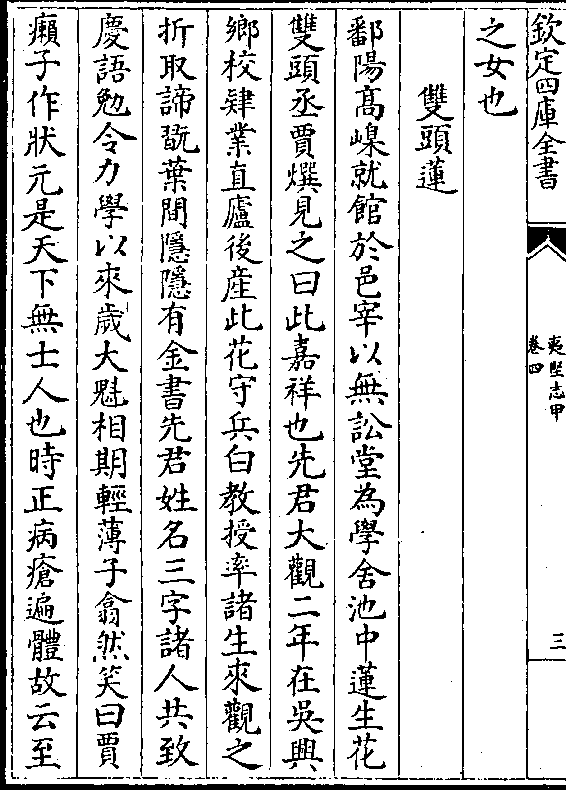 欽定四庫全書
夷堅志甲
卷四
三
之女也
雙頭蓮
鄱陽髙㠓就館於邑宰以無訟堂為學舍池中蓮生花
雙頭丞賈㒜見之曰此嘉祥也先君大觀二年在吳興
鄉校肄業直廬後産此花守兵白教授率諸生來觀之
折取諦翫葉間隱隱有金書先君姓名三字諸人共致
慶語勉令力學以來歲大魁相期輕薄子翕然笑曰賈
癩子作狀元是天下無士人也時正病瘡遍體故云至